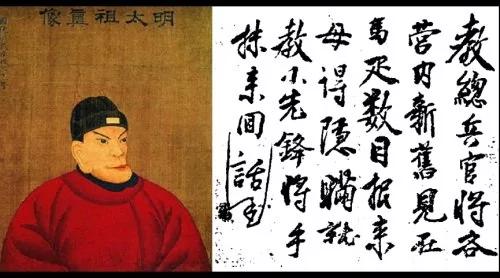 明太祖眞像
教總兵官將各
營内新舊見在
馬疋數目報来
毋得隱瞞就
教小先鋒將手
抹来回話